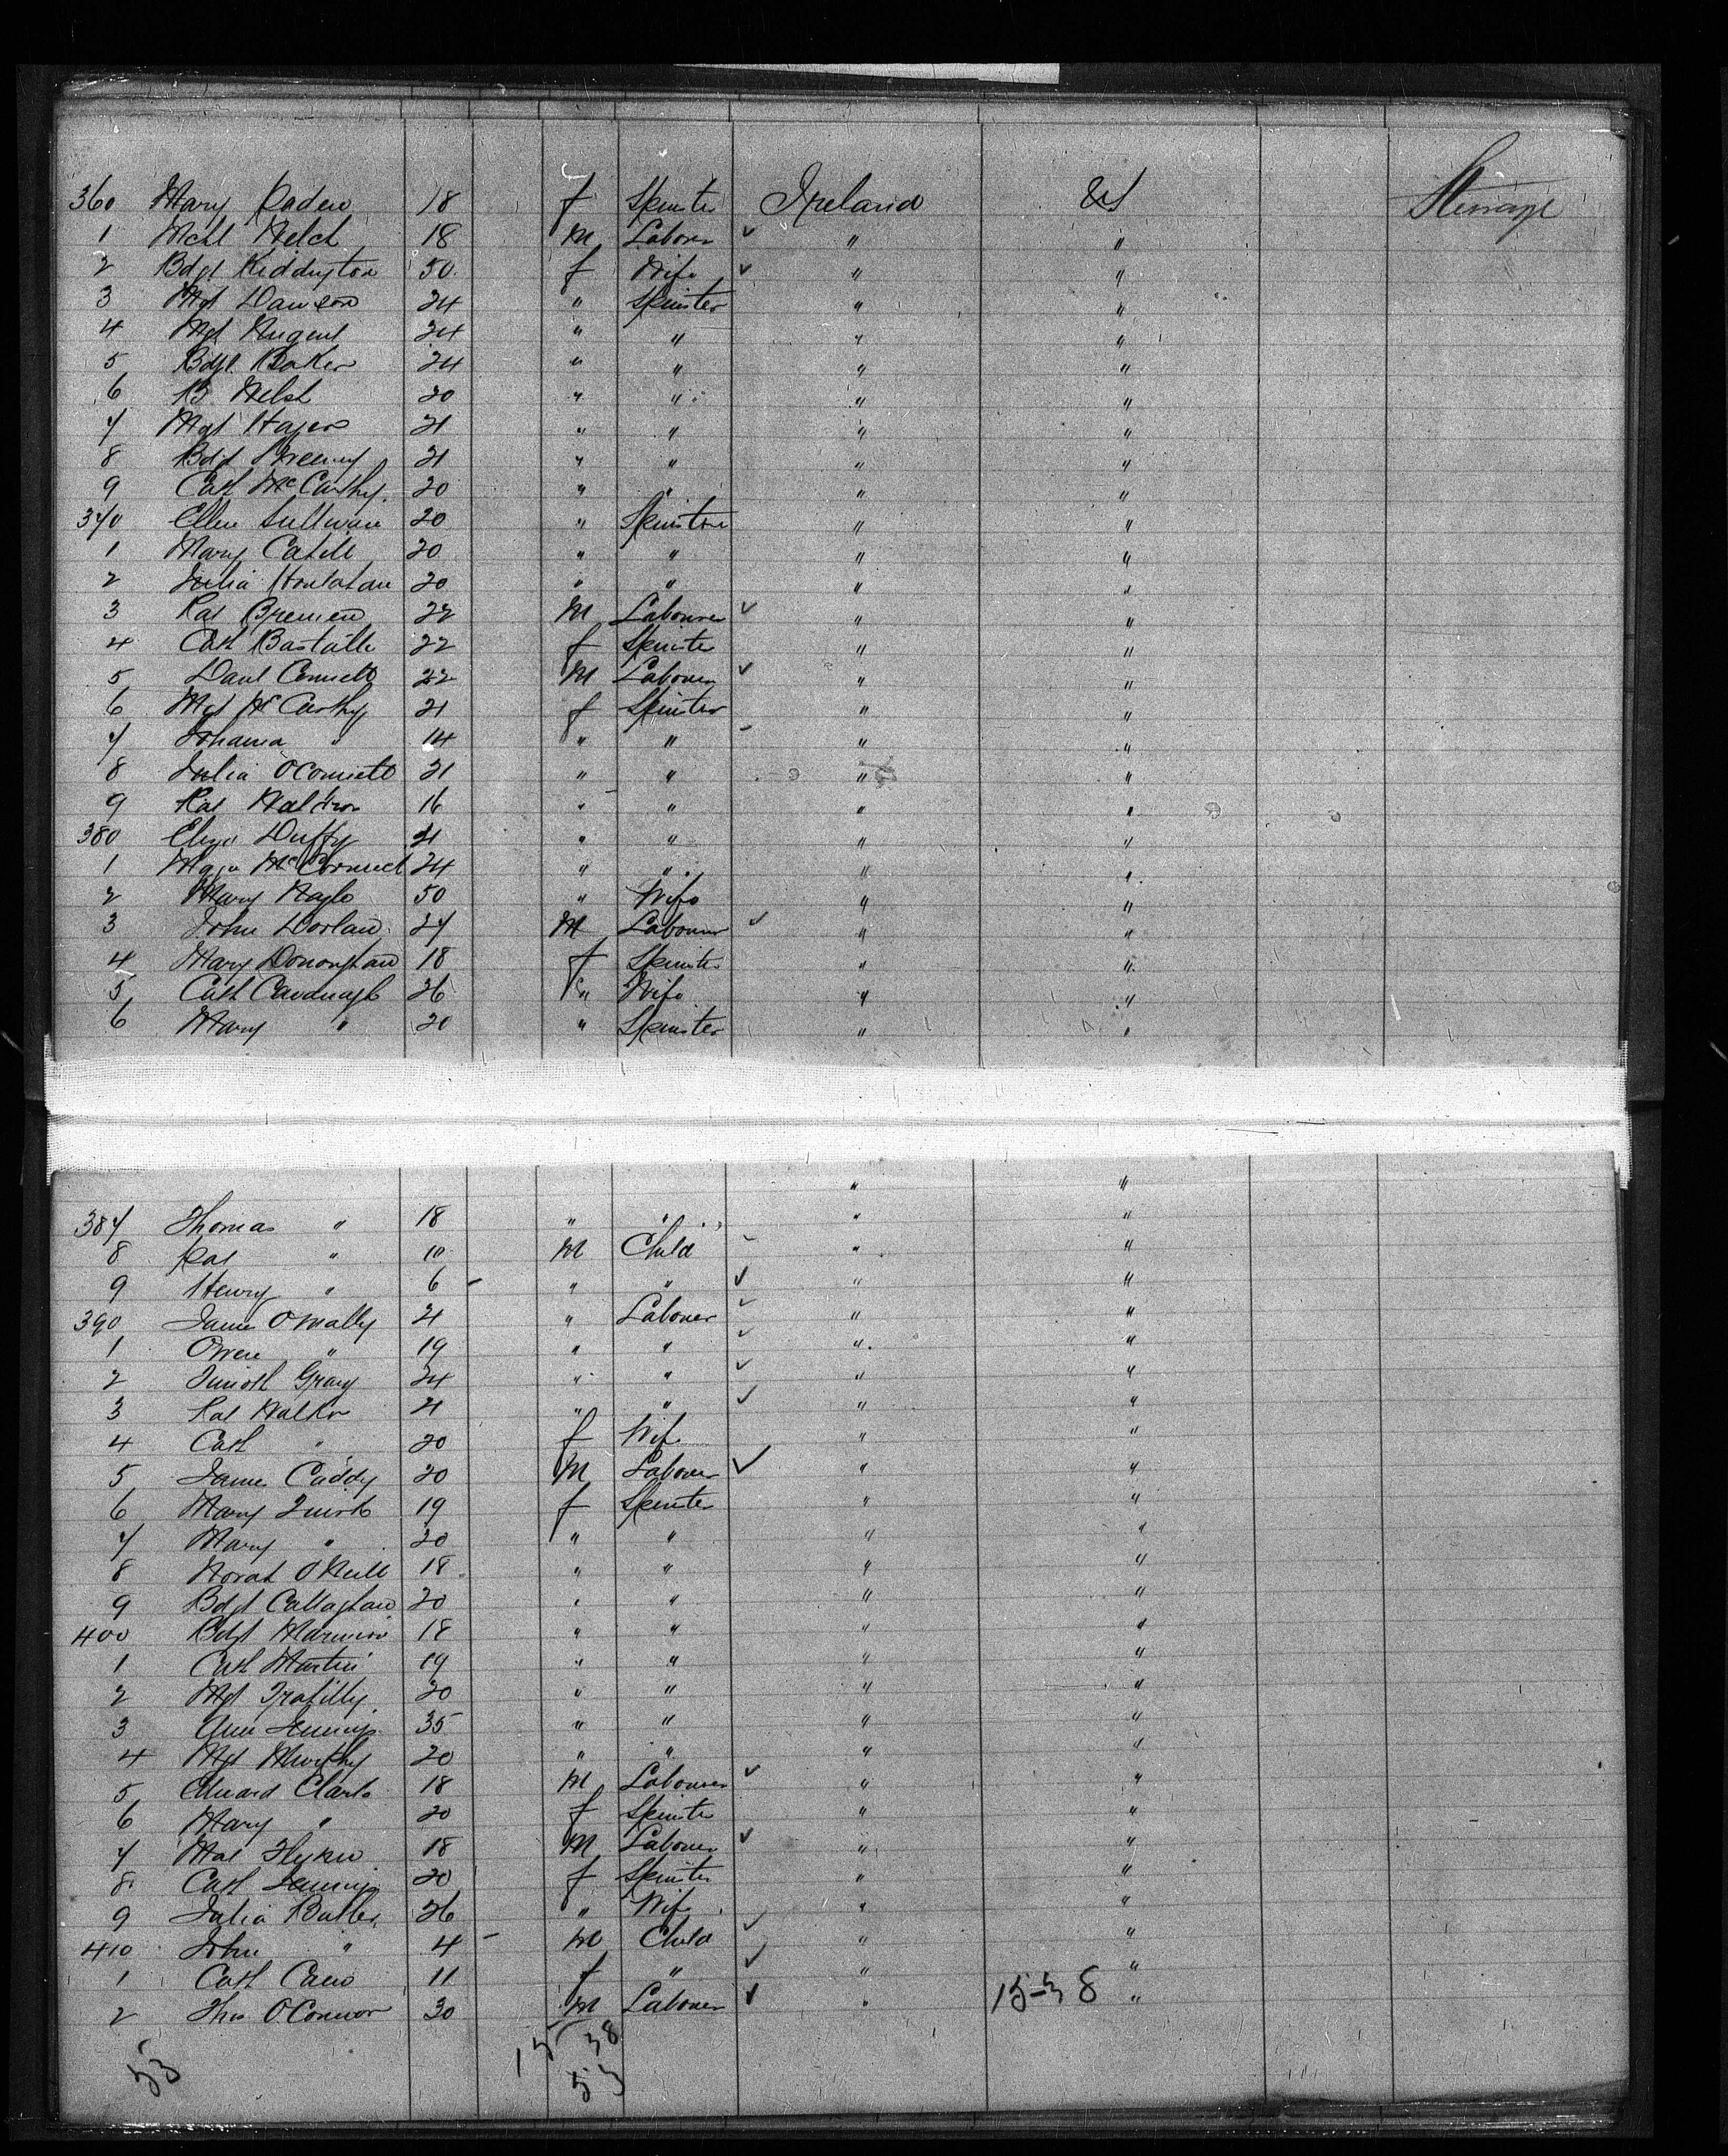 360 Mary Paden 18 f Spinster Ireland US Steerage
1 Mchl Welch 18 M Laborer ✓ " "
2 Bdgt Kiddington 50 f Wife ✓ " "
3 Mgt Dawson 24 " Spinster " "
4 Mgt Nugent 24 " " " "
5 Bdgt Baker 24 " " " "
6 B Welsh 20 " " " "
7 Mgt Hayes 21 " " " "
8 Bdgt Sweeney 21 " " " "
9 Cath McCarthy 20 " " " "
370 Ellen Sullivan 20 " Spinster " "
1 Mary Cahill 20 " " " "
2 Julia Houlahan 20 " " " "
3 Pat Brennen 22 M Labourer ✓ " "
4 Cath 22 f Spinster " "
5 Danl Connell 22 M Labourer ✓ " "
6 Mgt McCarthy 21 f Spinster " "
7 Johanna " 14 " " - " "
8 Julia OConnell 21 " " " "
9 Pat Waldron 16 " " " "
380 Eliza Duffy 21 " " " "
1 McCormick 24 " " " "
2 Mary Nagle 50 " Wife " "
3 John Dorlan 27 M Labourer ✓ " "
4 Mary Donoughan 18 f Spinster " "
5 Cath Cavanagh 26 " Wife " "
6 Mary " 20 " Spinster " "
" "
387 Thomas " 18 " " " "
8 Pat " 10 M Child - " "
9 Henry " 6 - " " ✓ " "
390 James OMally 21 " Laborer ✓ " "
1 Owen " 19 " " ✓ " "
2 Timoth Gray 24 " " ✓ " "
3 Pat Walker 21 " " ✓ " "
4 Cath " 20 f Wife " "
5 James Caddy 20 M Laborer ✓ " "
6 Mary Quirk 19 f Spinster " "
7 Mary " 20 " " " "
8 Norah ONeill 18 " " " "
9 Bdgt Callaghan 20 " " " "
400 Bdgt 18 " " " "
1 Cath Martin 19 " " " "
2 Mgt 20 " " " "
3 Ann Jennings 35 " " " "
4 Mgt Murphy 20 " " " "
5 Edward Clark 18 M Labourer ✓ " "
6 Mary " 20 f Spinster " "
7 18 M Labourer ✓ " "
8 Cath Jennings 20 f Spinster " "
9 Julia Butler 26 " Wife " "
410 John " 4 - M Child ✓ " "
1 Cath Cain 11 f " ✓ " "
2 Thos OConnor 30 M Laborer ✓ " 15-38 "
15 38
53 53